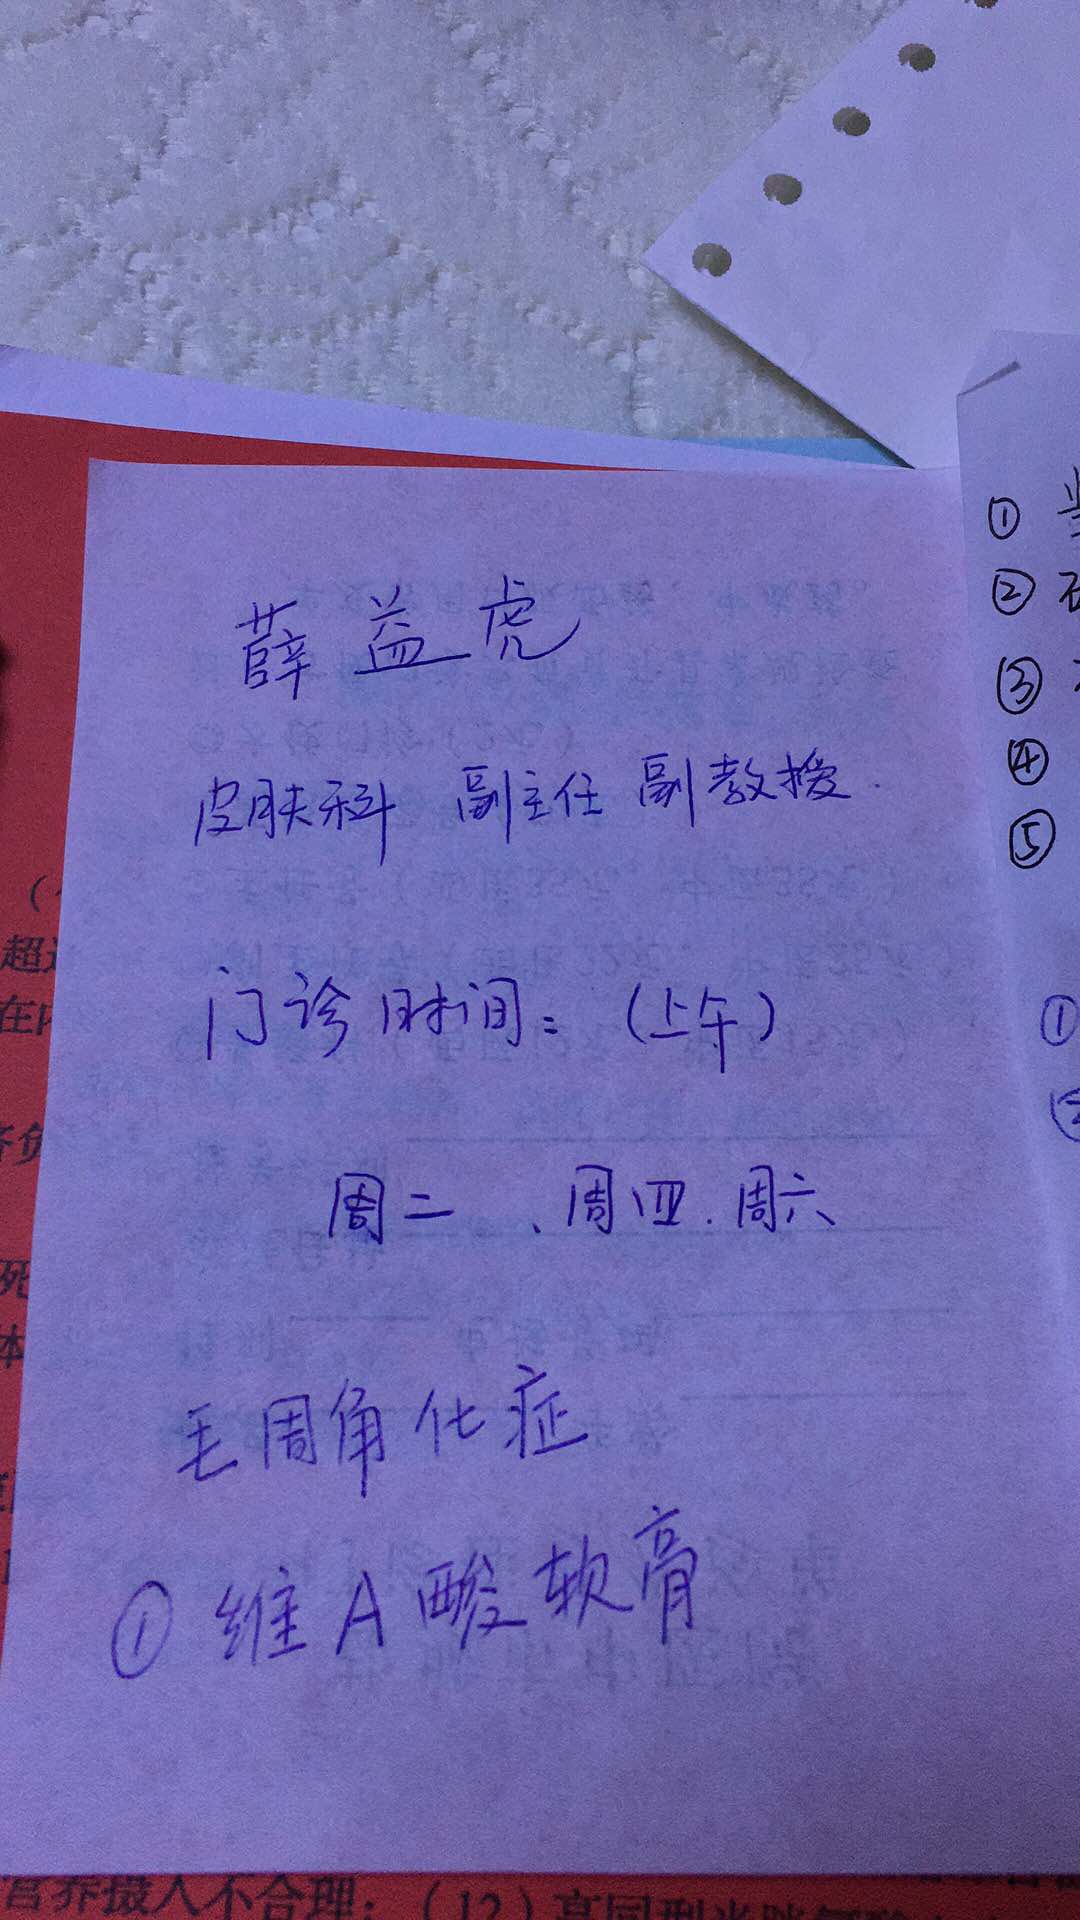 薛益虎
皮肤科 副主任 副教授.
门诊时间：（上午）
周二 、周四.周六
毛周角化症
① 维A酸软膏
①
②
③
④
⑤
①
②
（
超过
在
死
体
营养摄入不合理；（12）高同型半胱氨酸